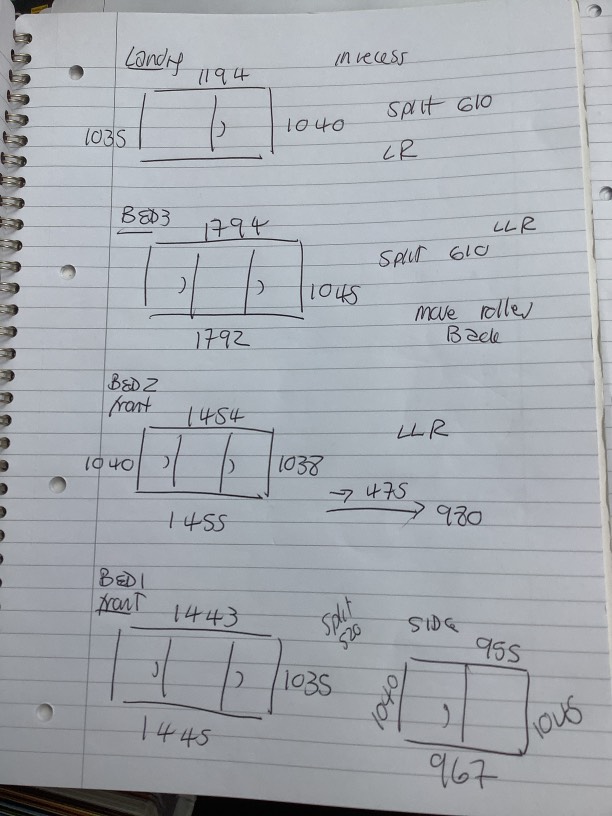 Landg
in recess
1194
1035
1040
split 610
LR
BED3
1794
LLR
split 610
1045
move roller
Back
1792
BED2
front
1454
LLR
1040
1038
→ 475
→ 980
1455
BED1
front
1443
split
520
SIDE
955
1035
1040
1045
1445
967